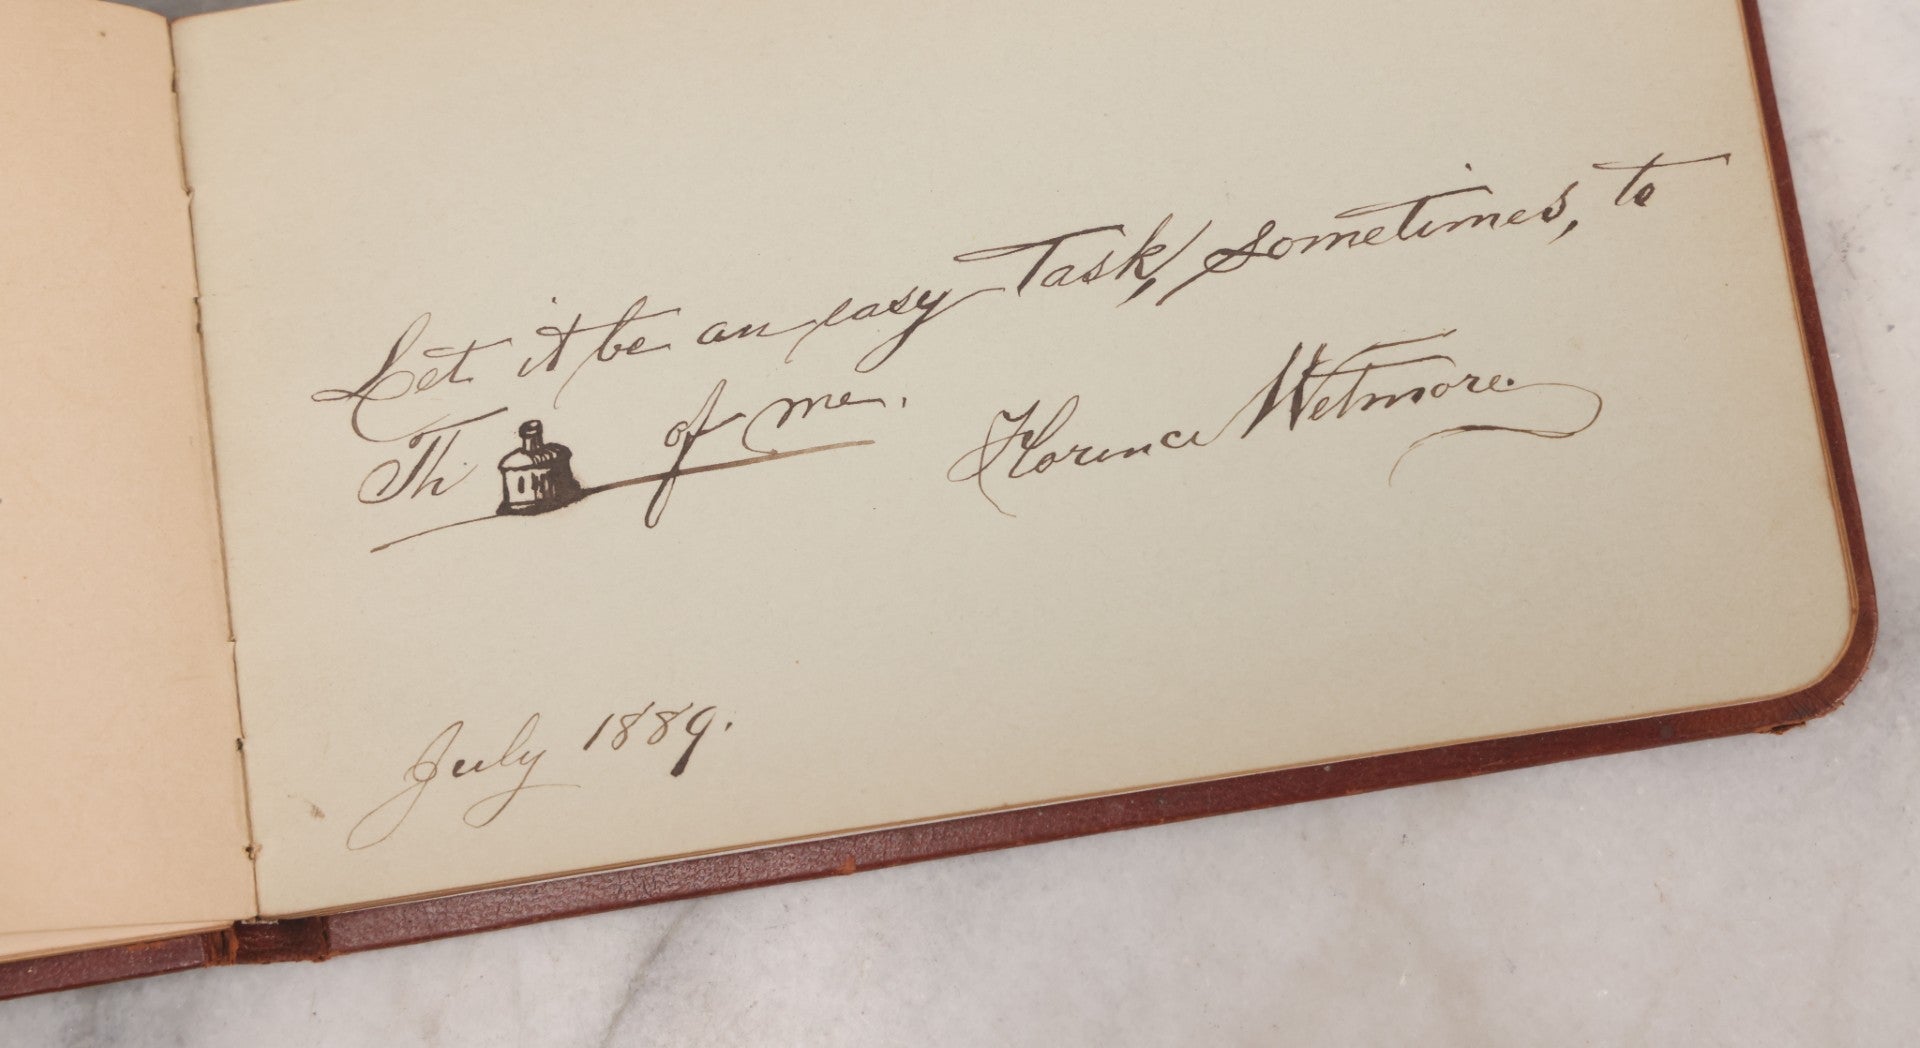 Let it be an easy Task, sometimes, to
Thi of me.
Florence Wetmore.
July 1889.